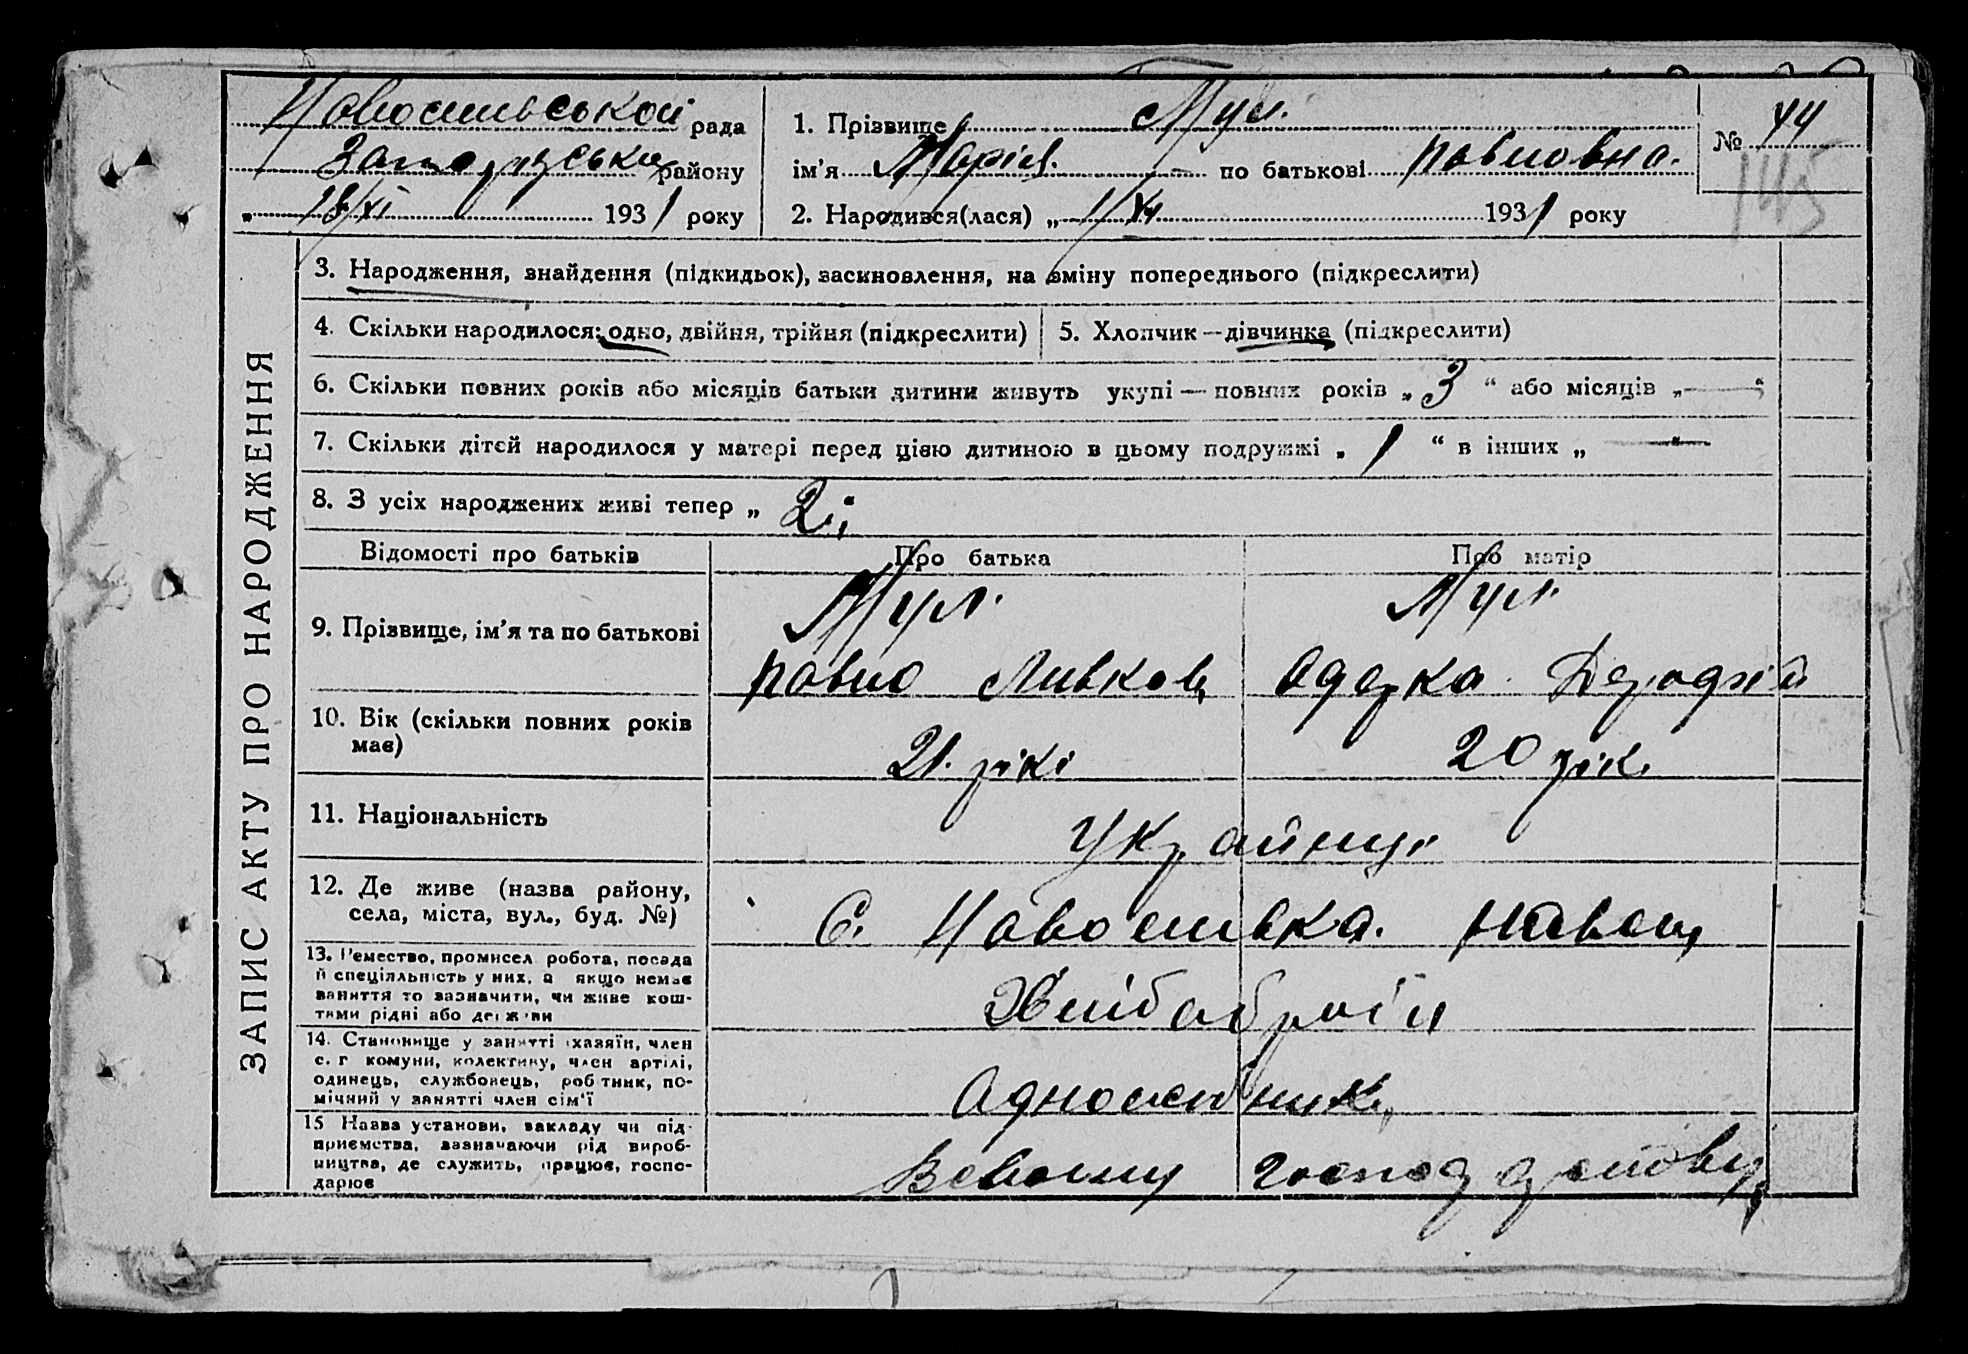 Новоспивської рада
району
„ 13/XI 1931 року
1. Прізвище Мул.
ім'я Марія. по батькові Павловна.
2. Народився(лася) „ 1/XI 1931 року
№ 44
145
ЗАПИС АКТУ ПРО НАРОДЖЕННЯ
3. Народження, знайдення (підкидьок), засиновлення, на зміну попереднього (підкреслити)
4. Скільки народилося: одно, двійня, трійня (підкреслити)
5. Хлопчик — дівчинка (підкреслити)
6. Скільки повних років або місяців батьки дитини живуть укупі — повних років „ 3 “ або місяців „ — “
7. Скільки дітей народилося у матері перед цією дитиною в цьому подружжі „ 1 “ в інших „ — “
8. З усіх народжених живі тепер „ 2 “
Відомості про батьків
Про батька
Про матір
9. Прізвище, ім'я та по батькові
Мул.
Павло
Мул.
10. Вік (скільки повних років має)
21. рікі
20 рік.
11. Національність
Українці
12. Де живе (назва району, села, міста, вул., буд. №)
С.
13. Ремество, промисел робота, посада
й спеціяльність у них, а якщо немає
заняття то зазначити, чи живе кош-
тами рідні або держави
Хлібороби
14. Становище у занятті (хазяїн, член
с. г комуни, колективу, член артілі,
одинець, службовець, робітник, по-
мічний у занятті член сім'ї
Одноосібник
15 Назва установи, закладу чи під-
приємства, зазначаючи рід вироб-
ництва, де служить, працює, госпо-
дарює
В своему господарстві